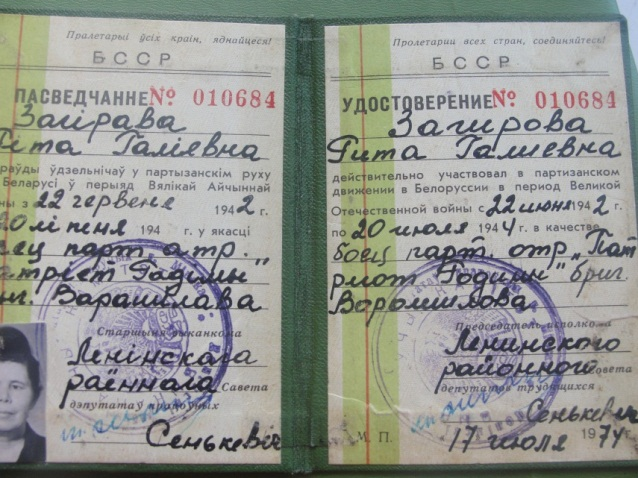 Пралетарыі ўсіх краін, яднайцеся!
БССР
ПАСВЕДЧАННЕ № 010684
Загірава
Гіта Галіеўна
раўды ўдзельнічаў у партызанскім руху
Беларусі ў перыяд Вялікай Айчыннай
ны з 22 червеня 1942 г.
20 ліпеня 194 г. у якасці
боец парт. атр. „
атрыёт Радзімы
Варашилава
Старшыня выканкома
Ленінскага
раённага Савета
дэпутатаў працоўных
Сенькевіч
Пролетарии всех стран, соединяйтесь!
БССР
УДОСТОВЕРЕНИЕ № 010684
Загирова
Гита Галиевна
действительно участвовал в партизанском
движении в Белоруссии в период Великой
Отечественной войны с 22 июня 1942 г.
по 20 июля 1944 г. в качестве
боец парт. отр. „Пат
риот Родины" бриг.
Ворошилова
Председатель исполкома
Ленинского
районного Совета
депутатов трудящихся
Сенькевич
М. П. 17 июля 1974 г.